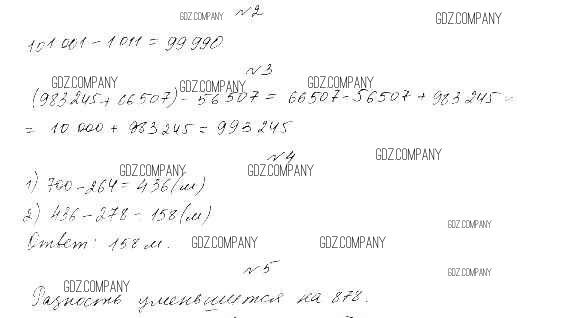 GDZ.COMPANY №2 GDZ.COMPANY
101 001 - 1 011 = 99 990
№3
GDZ.COMPANY GDZ.COMPANY GDZ.COMPANY
(983 245 + 66 507) - 56 507 = 66 507 - 56 507 + 983 245 =
= 10 000 + 983 245 = 993 245
№4 GDZ.COMPANY
GDZ.COMPANY GDZ.COMPANY
1) 700 - 264 = 436 (м)
2) 436 - 278 - 158 (м)
GDZ.COMPANY
Ответ: 158 м. GDZ.COMPANY GDZ.COMPANY
№5 GDZ.COMPANY
GDZ.COMPANY
Разность уменьшится на 878.